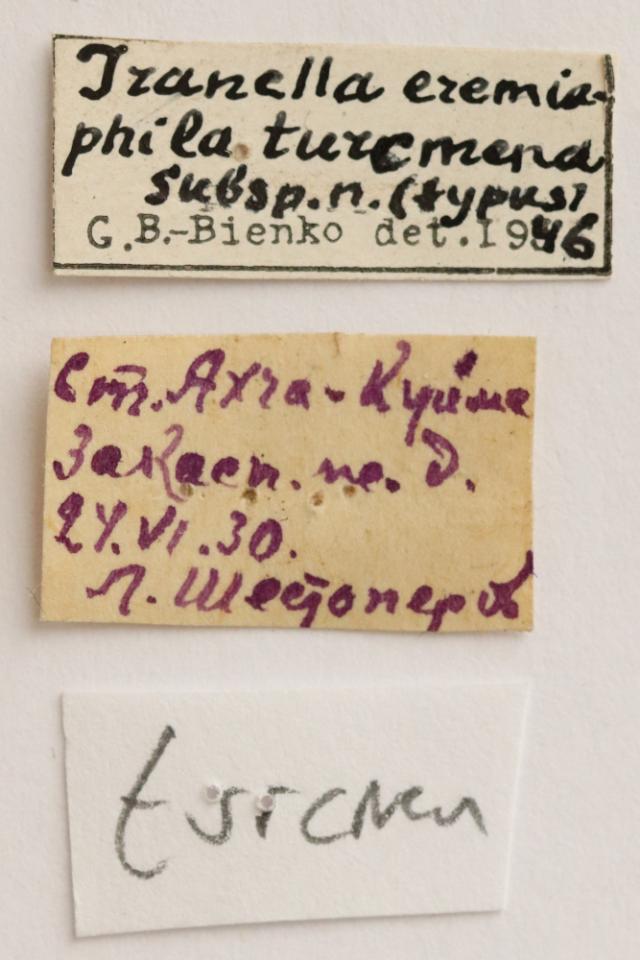 Iranella eremia-
phila turcmena
subsp.n. (typus)
G.B.-Bienko det.1946
Ст. Ахча-Куйма
Закасп. ж. д.
24.VI.30.
Л. Шестоперов
turcmen